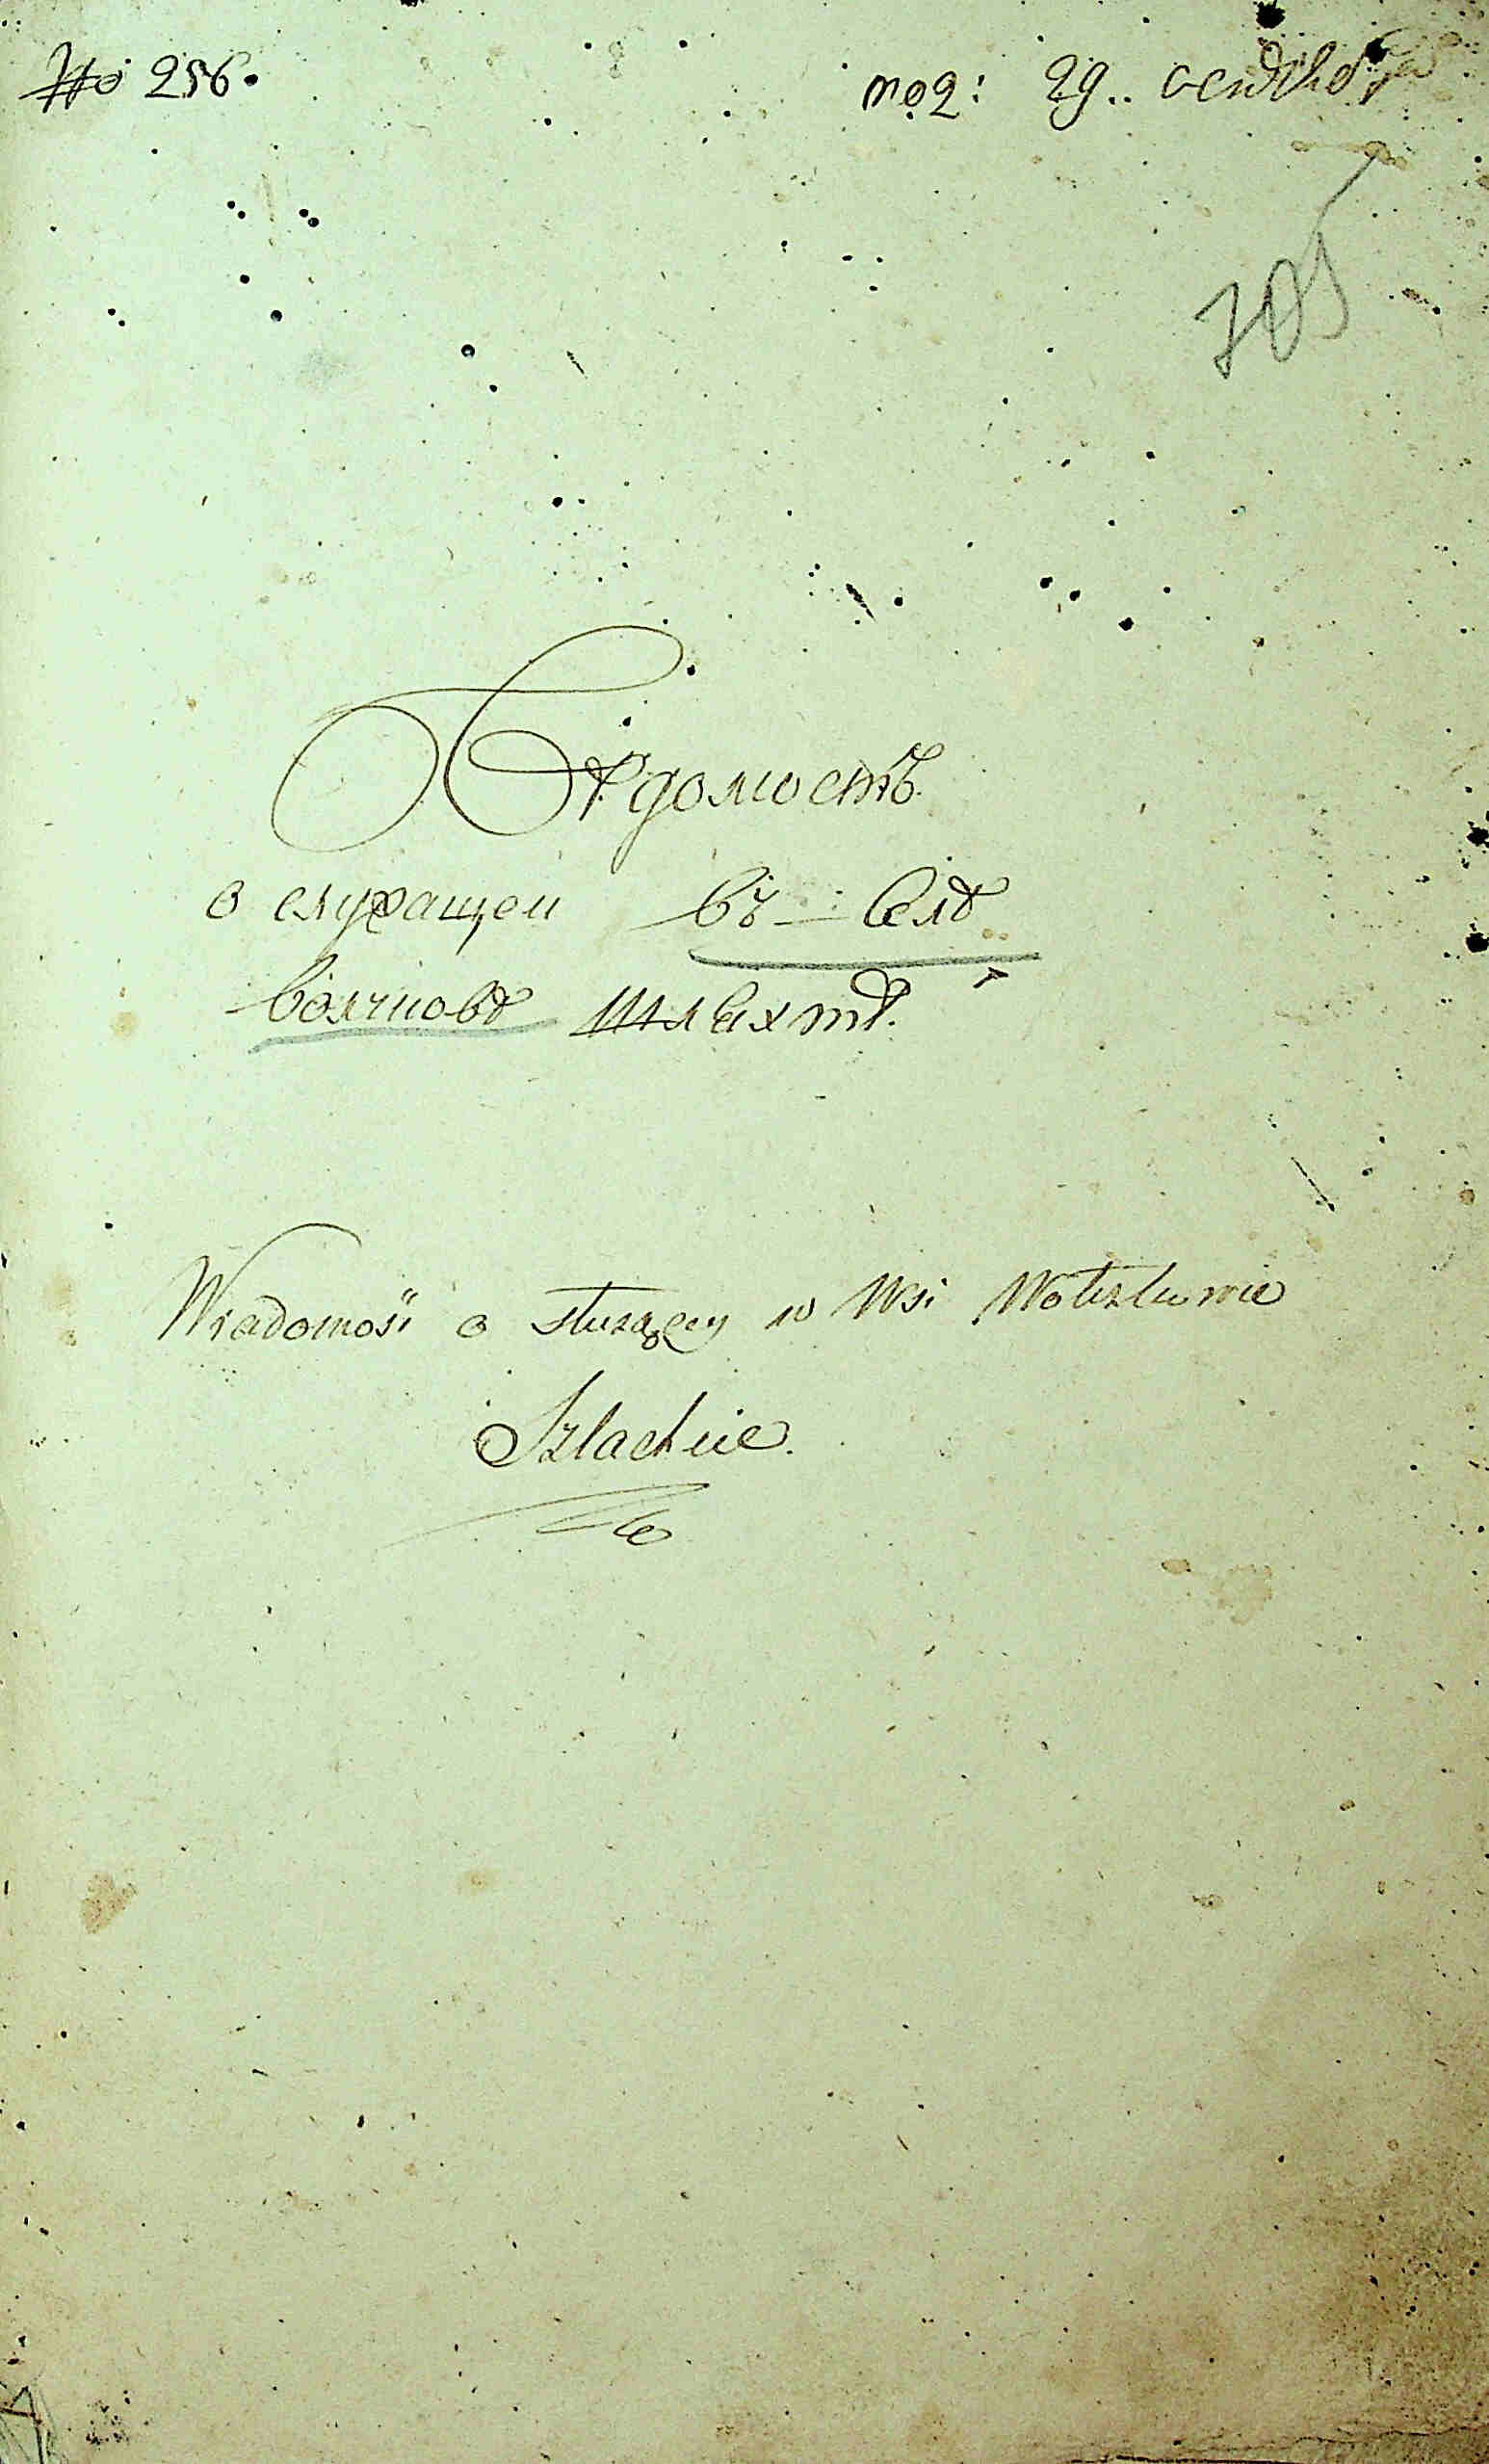 № 256.
под: 29.. сентяб
705
Вѣдомость
о служащей въ Селѣ
Волчковѣ шляхтѣ.
Wiadomość o służący w Wsi Wołczkowie
Szlachcie.